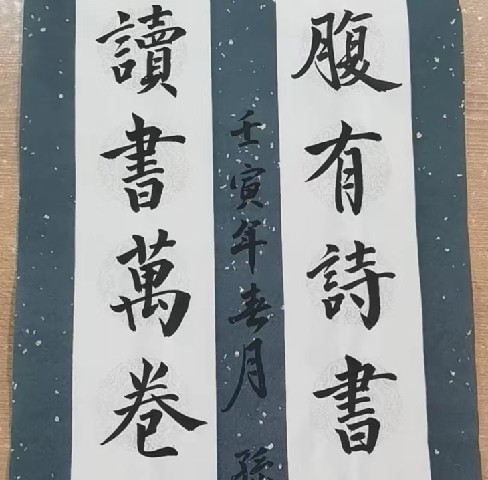 腹有詩書
讀書萬卷
壬寅年春月孫